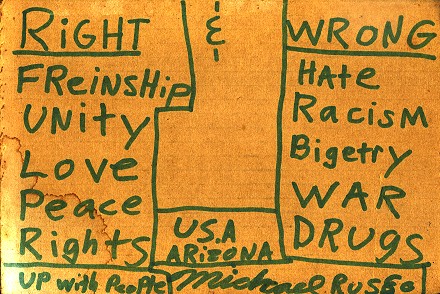 RiGHT
FReinSHip
UNity
Love
Peace
Rights
UP with PeoPle
&
WRONG
HAte
Racism
Bigetry
WAR
DRUGS
U.S.A
ARiZONA
Michael RUSEO